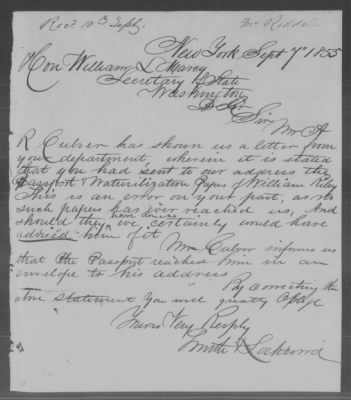 Recd 10th Sept.
Mr Riddall
New York Sept 7th 1855
Hon William L Marcy
Secretary of State
Washington
Sir
Mr A
R Culver has shown us a letter from
your department, wherein it is stated
that you had sent to our address the
Passport & Naturilization Papers of William Riley
This is an error on your part, as no
such papers has ever reached us, And
should they have done so, we certainly would have
advised him of it Mr Culver informs us
that the Passport reached him in an
envelope to his address
By correcting the
above statement you will greatly oblige
Yours Very Resply
Smith & Lockwood